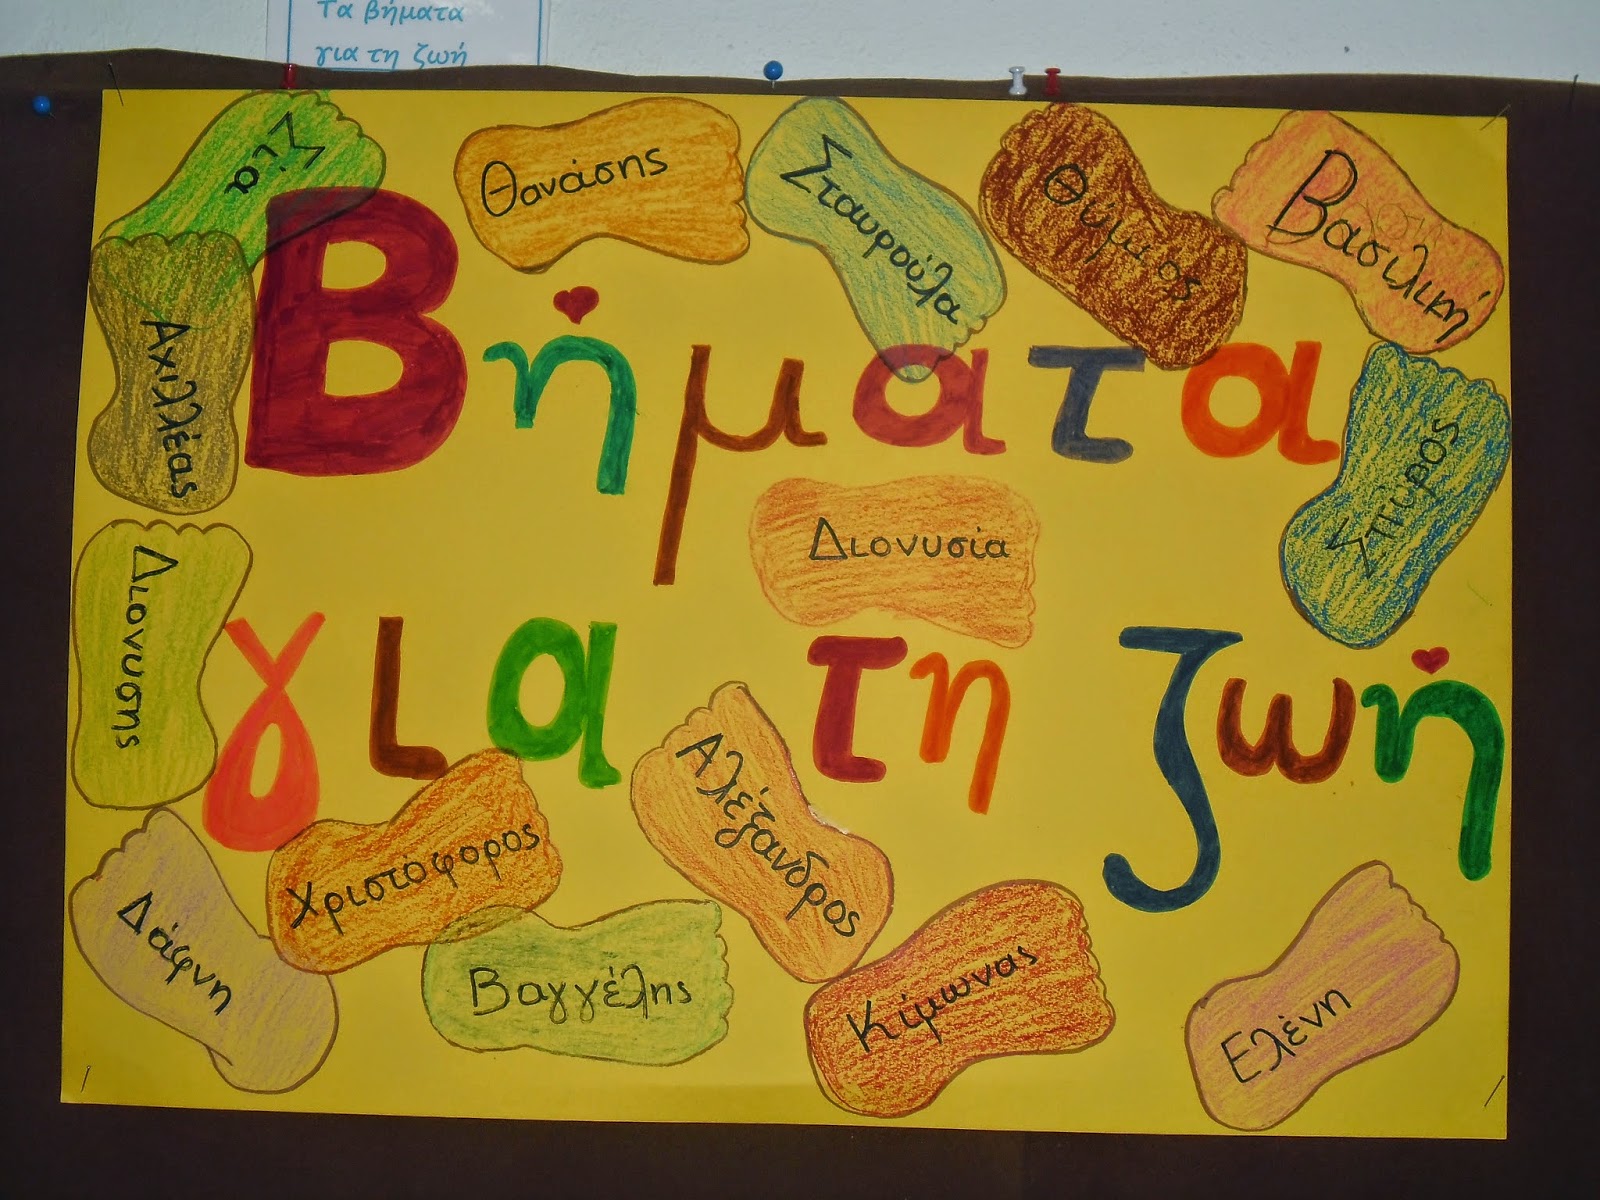 Τα βήματα
για τη ζωή
Σία
Θανάσης
Σταυρούλα
Θύμιος
Βασιλική
Αχιλλέας
Βήματα
Σπύρος
Διονυσία
Διονύσης
για τη ζωή
Αλέξανδρος
Χριστόφορος
Δάφνη
Βαγγέλης
Κίμωνας
Ελένη